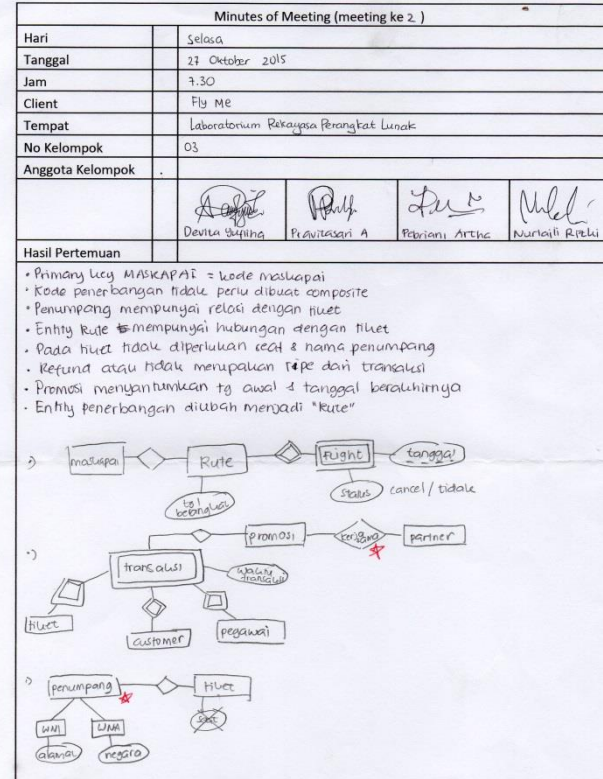 Minutes of Meeting (meeting ke 2 )
Hari Selasa
Tanggal 27 Oktober 2015
Jam 7.30
Client Fly Me
Tempat Laboratorium Rekayasa Perangkat Lunak
No Kelompok 03
Anggota Kelompok .
Devita Pravitasari A Febriani Artha Nurlaili Rizki
Hasil Pertemuan
• Primary key MASKAPAI = kode maskapai
• Kode penerbangan tidak perlu dibuat composite
• Penumpang mempunyai relasi dengan tiket
• Entity Rute mempunyai hubungan dengan tiket
• Pada tiket tidak diperlukan seat & nama penumpang
• Refund atau tidak merupakan tipe dari transaksi
• Promosi menyantumkan tg awal & tanggal berakhirnya
• Entity penerbangan diubah menjadi "Rute"
maskapai Rute Flight tanggal
tgl berangkat
status cancel / tidak
promosi kerjasama partner
transaksi waktu transaksi
tiket customer pegawai
penumpang tiket
seat
WNI WNA
alamat negara